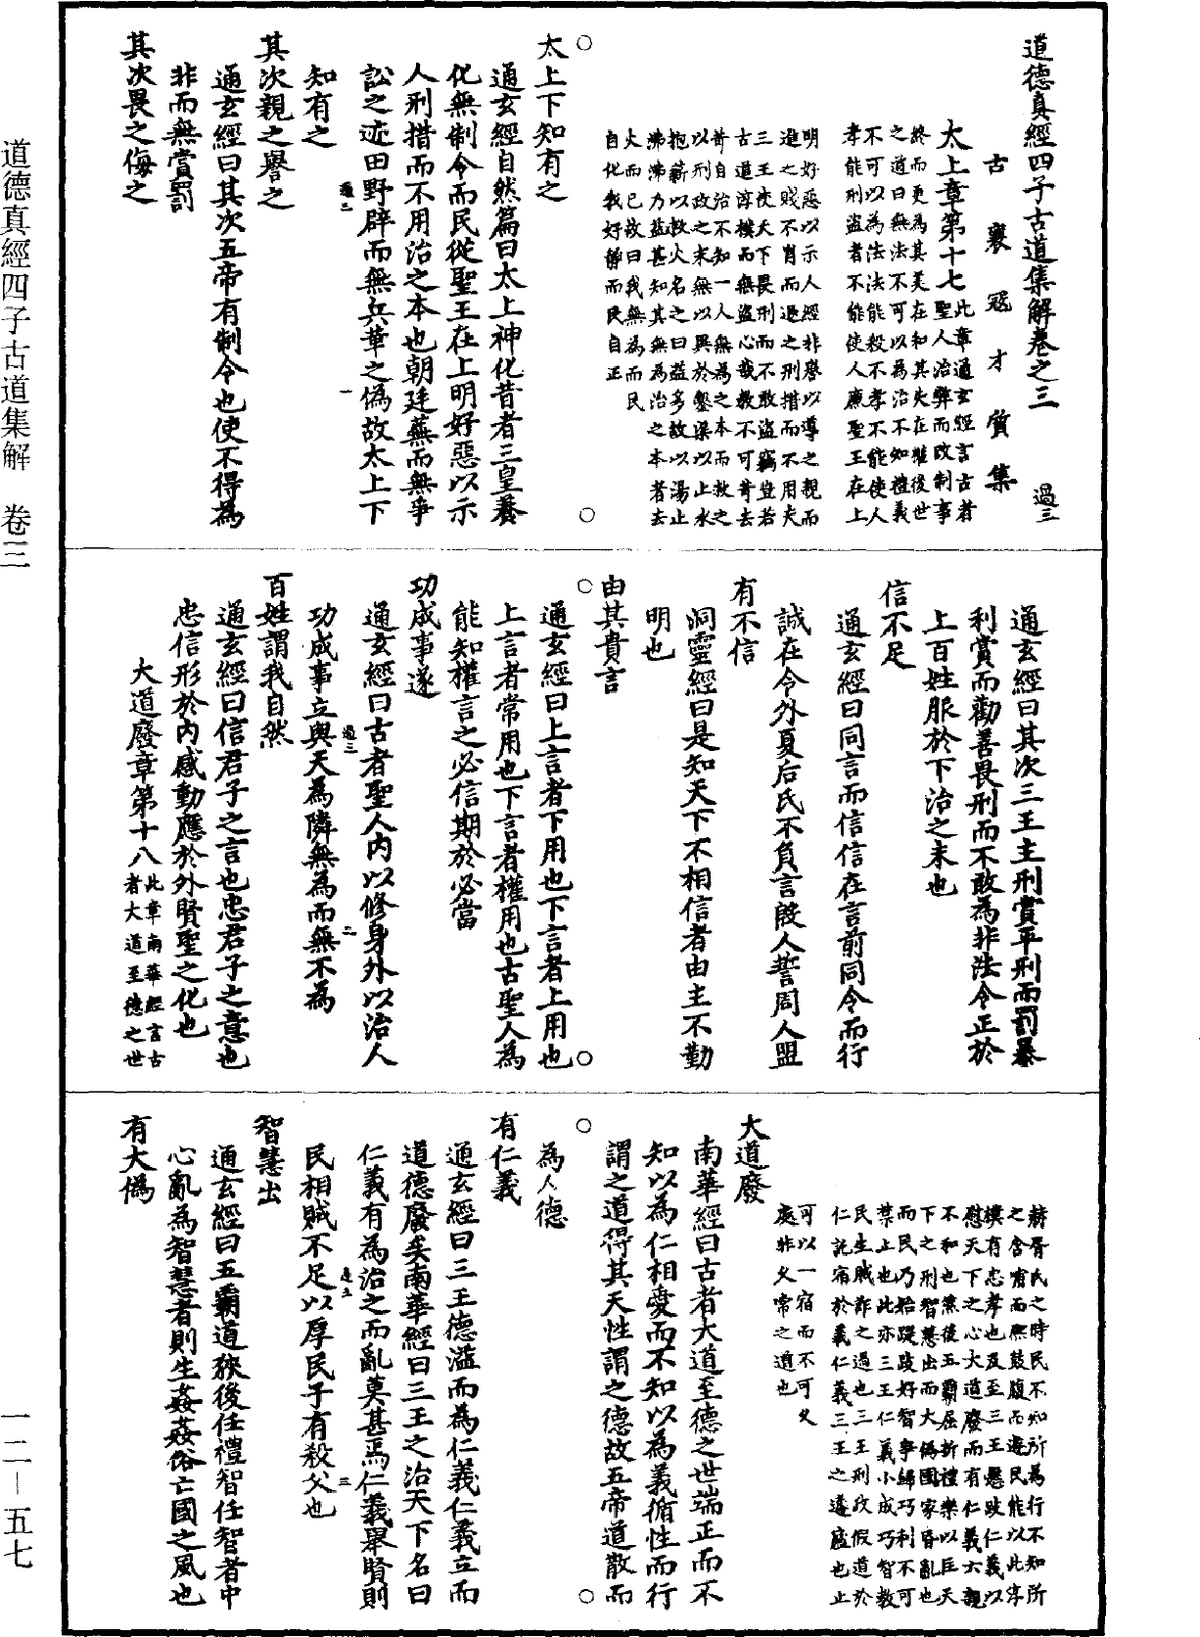 道德真經四子古道集解卷之三　　過三
古襄寇才質集
太上章第十七
此章通玄經言古者
聖人治弊而改制事
終而更為其美在和其失在權後世
之道曰無法不可以為治不知禮義
不可以為法法能殺不孝不能使人
孝能刑盜者不能使人廉聖王在上
明好惡以示人經非譽以導之親而
進之賤不肖而退之刑措而不用夫
三王使天下畏刑而不敢盜竊豈若
古道淳樸而無盜心哉教不可苛去
苛自治不知一人無為之本而救之
以刑政之末無以異於鑿渠以止水
抱薪以救火名之曰益多故以湯止
沸沸乃益甚知其無為治之本者去
火而已故曰我無為而民
自化我好靜而民自正
太上下知有之
通玄經自然篇曰太上神化昔者三皇養
化無制令而民從聖王在上明好惡以示
人刑措而不用治之本也朝廷蕪而無爭
訟之迹田野辟而無兵革之偽故太上下
過三　一
知有之
其次親之譽之
通玄經曰其次五帝有制令也使不得為
非而無賞罰
其次畏之侮之
通玄經曰其次三王主刑賞平刑而罰暴
利賞而勸善畏刑而不敢為非法令正於
上百姓服於下治之末也
信不足
通玄經曰同言而信信在言前同令而行
誠在令外夏后氏不負言殷人誓周人盟
有不信
洞靈經曰是知天下不相信者由主不勤
明也
由其貴言
通玄經曰上言者下用也下言者上用也
上言者常用也下言者權用也古聖人為
能知權言之必信期於必當
功成事遂
通玄經曰古者聖人內以修身外以治人
過三　二
功成事立與天為隣無為而無不為
百姓謂我自然
通玄經曰信君子之言也忠君子之意也
忠信形於內感動應於外賢聖之化也
大道廢章第十八
此章南華經言古
者大道至德之世
赫胥氏之時民不知所為行不知所
之含哺而熙鼓腹而遊民能以此淳
樸有忠孝也及至三王懸跂仁義以
慰天下之心大道廢而有仁義六親
不和也然後五霸屈折禮樂以匡天
下之刑智慧出而大偽國家昏亂也
而民乃始踶跂好智爭歸巧利不可
禁止也此亦三王仁義小成巧智教
民生賊詐之過也三王刑政假道於
仁託宿於義仁義三王之蘧廬也止
可以一宿而不可久
處非久常之道也
大道廢
南華經曰古者大道至德之世端正而不
知以為仁相愛而不知以為義循性而行
謂之道得其天性謂之德故五帝道散而
為人德
有仁義
通玄經曰三王德溢而為仁義仁義立而
道德廢矣南華經曰三王之治天下名曰
仁義有為治之而亂莫甚焉仁義舉賢則
過三　三
民相賊不足以厚民子有殺父也
智慧出
通玄經曰五霸道狹後任禮智任智者中
心亂為智慧者則生姦姦俗亡國之風也
有大偽
道德真經四子古道集解　卷三
一二－五七